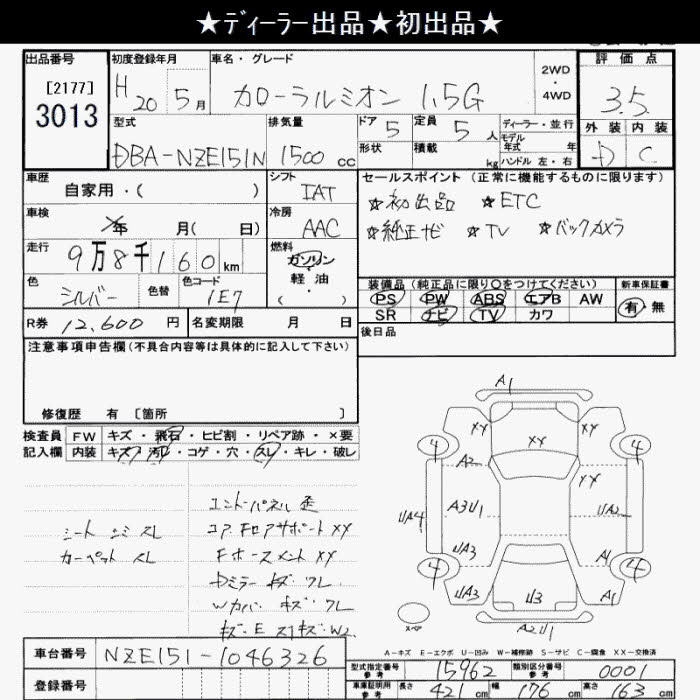 ★ディーラー出品★初出品★
出品番号
[2177]
3013
初度登録年月
H 20 5月
車名・グレード
カローラルミオン 1.5G
2WD
・
4WD
評価点
3.5
外装 内装
D C
型式
DBA-NZE151N
排気量
1500 cc
ドア 5
定員 5 人
形状
積載 kg
ディーラー・並行
モデル
年式 年
ハンドル 左・右
車歴
自家用・( )
シフト
IAT
セールスポイント (正常に機能するものに限ります)
☆初出品 ☆ETC
☆純正ナビ ☆TV ☆バックカメラ
車検
年 月( 日)
冷房
AAC
走行
9万8千160 km
燃料
ガソリン
・
軽油
( )
色
シルバー
色替
色コード
1E7
装備品 (純正品に限り○をつけてください)
PS PW ABS エアB AW
SR ナビ TV カワ
新車保証書
有・無
R券 12,600 円
名変期限 月 日
後日品
注意事項申告欄(不具合内容等は具体的に記入して下さい)
修復歴 有 [箇所 ]
検査員
記入欄
FW キズ・飛石・ヒビ割・リペア跡・×要
内装 キズ・汚レ・コゲ・穴・スレ・キレ・破レ
シート シミ スレ
カーペット スレ
コア.Fロアサポート XX
Fホースメント XX
Dミラー キズ フレ
Wカバー キズ フレ
A1
XX XX XX
4 4
A2 XX
UA4 A3U1 UA2
UA3 A1
4 4
UA3 U3 A1
A2U1
スペア
A-キズ E-エクボ U-凹み W-補修跡 S-サビ C-腐食 XX-交換済
車台番号
NZE151-1046326
登録番号
型式指定番号
参考
15962
類別区分番号
参考
0001
車庫証明用
参考
長さ 421 cm 幅 176 cm 高さ 163 cm